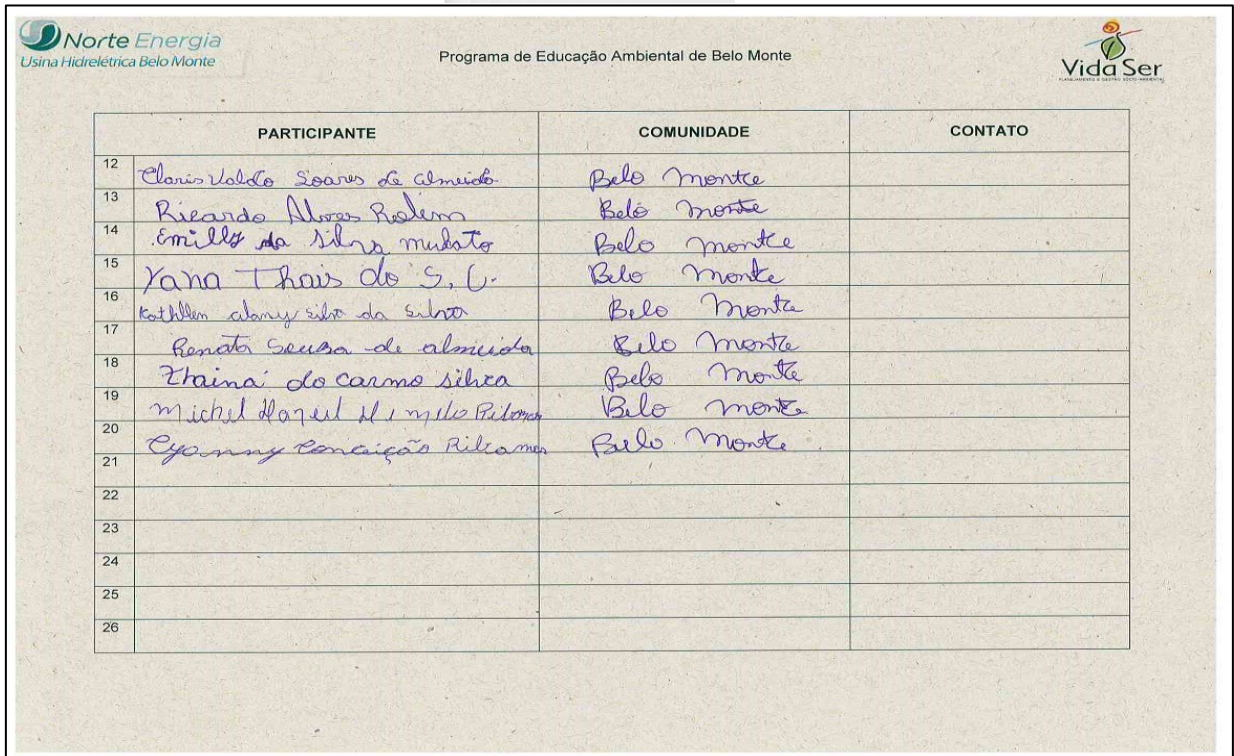 Norte Energia
Usina Hidrelétrica Belo Monte
Programa de Educação Ambiental de Belo Monte
Vida Ser
PLANEJAMENTO E GESTÃO SÓCIO-AMBIENTAL
PARTICIPANTE COMUNIDADE CONTATO
12 Claris Valdo Soares de almeida Belo Monte
13 Ricardo Alves Rolem Belo monte
14 Emilly da silva mulato Belo monte
15 Yana Thais do S. C. Belo Monte
16 Kathllen alany silva da silva Belo Monte
17 Renata Souza de almeida Belo Monte
18 Thainá do carmo silva Belo Monte
19 michel Belo monte
20 Conceição Belo Monte
21
22
23
24
25
26